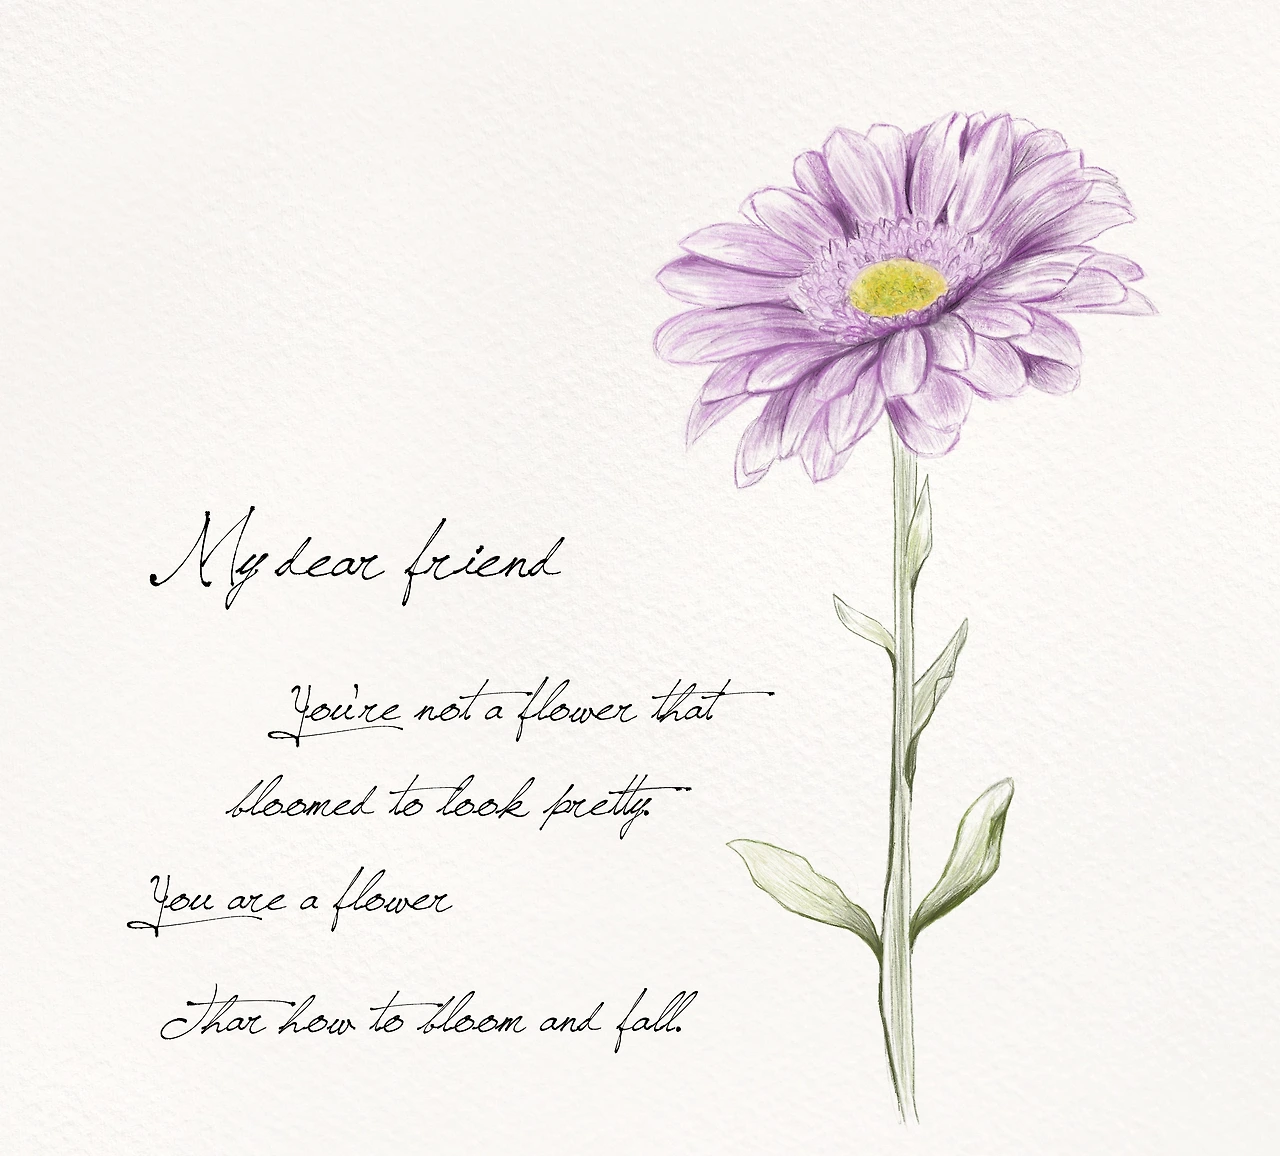 My dear friend
You're not a flower that
bloomed to look pretty.
You are a flower
Thar how to bloom and fall.